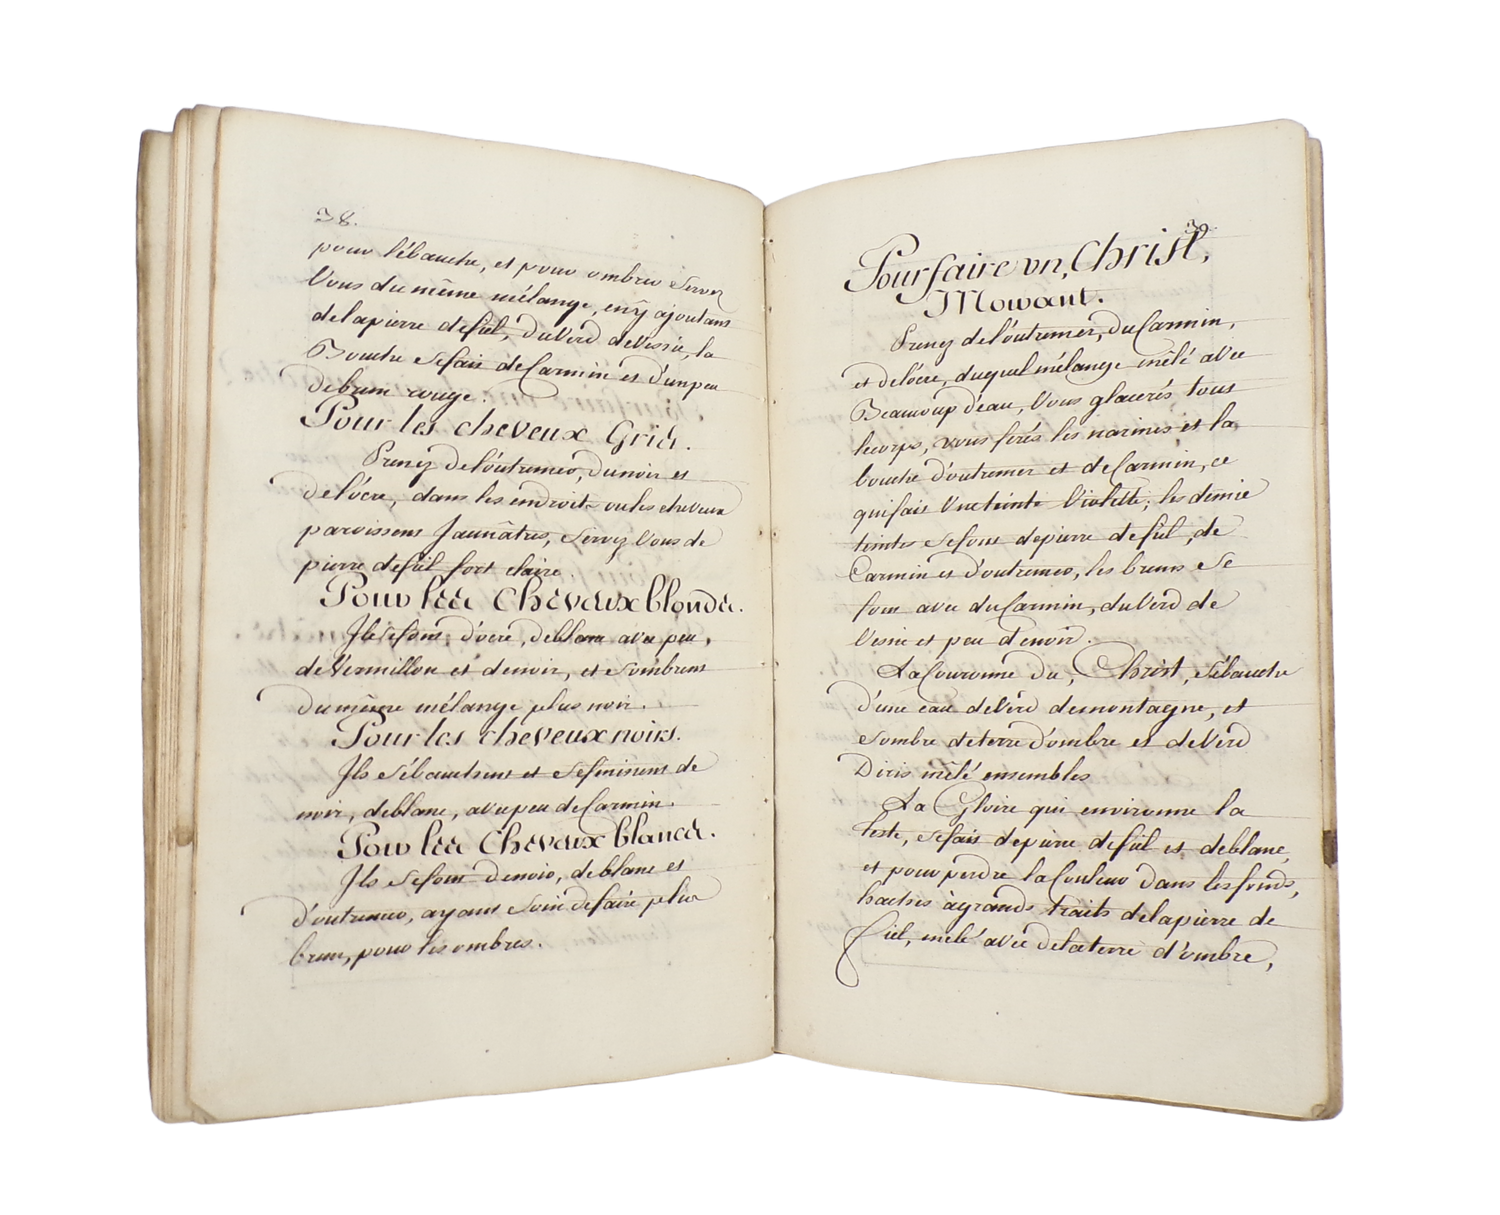 38.
pour l'ébauche, et pour ombrer Servez
Vous du même mélange, en y ajoutans
de la pierre de fiel, du Verd de Vessie, la
Bouche Se fais de Carmin et d'un peu
de brun rouge.
Pour les cheveux Gris.
Prenez de l'outremer, du noir et
de l'ocre, dans les endroits ou les cheveux
paroissens Jaunâtres, Servez Vous de
pierre de fiel fort claire.
Pour les Cheveux blonds.
Ils Se fons, d'ocre, de blanc avec peu,
de Vermillon et de noir, et S'ombrens
du même mélange plus noir.
Pour les cheveux noirs.
Ils S'ébauchens et Se finissens de
noir, de blanc, avec peu de Carmin.
Pour les Cheveux blancs.
Ils Se fons de noir, de blanc et
d'outremer, ayans Soin de faire plus
brun, pour les ombres.
39.
Pour faire un, Christ,
Mourant.
Prenez de l'outremer, du Carmin,
et de l'ocre, duquel mélange mêlé avec
Beaucoup d'eau, Vous glacerés tous
le corps, vous ferés les narines et la
bouche d'outremer et de Carmin, ce
qui fais Une teinte Violette; les démie
teintes Se fons de pierre de fiel, de
Carmin et d'outremer, les bruns Se
fons avec du Carmin, du Verd de
Vessie et peu de noir.
La Couronne du, Christ, S'ébauche
d'une eau de Verd de montagne, et
S'ombre de terre d'ombre et de Verd
D'iris mêlé ensembles
La Gloire qui environne la
teste, Se fais de pierre de fiel et de blanc,
et pour perdre la Couleur dans les fonds,
hachés à grands traits de la pierre de
fiel, mêlé avec de la terre d'ombre,